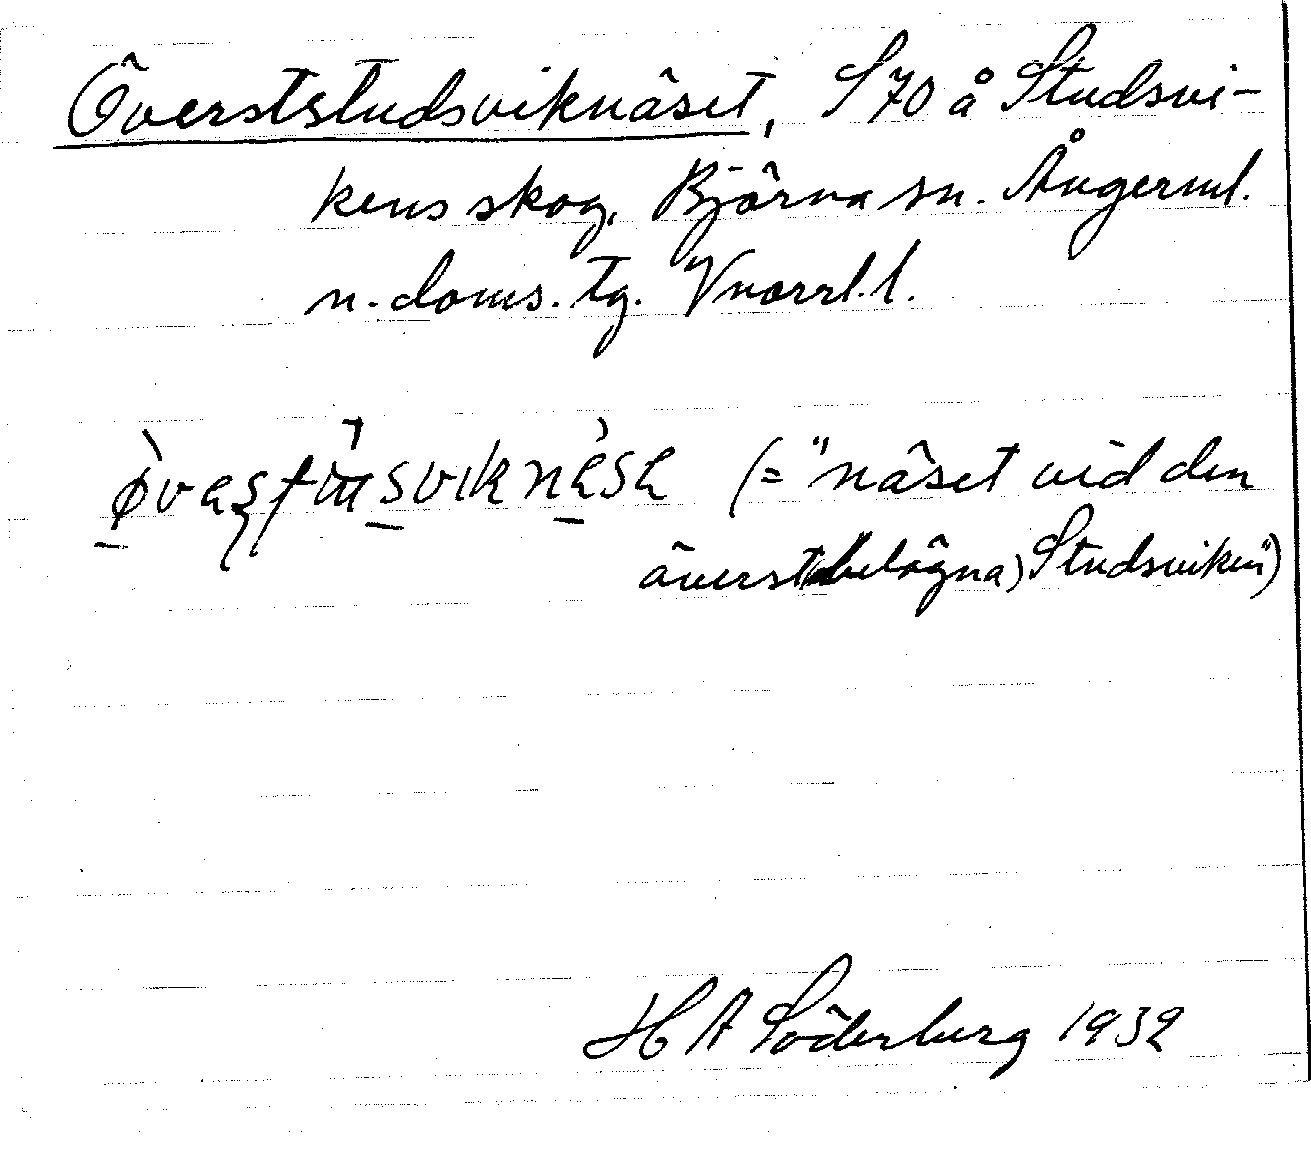 Överststudsviknäset, S70 å Studsvi-
kens skog, Björna sn. Ångerml.
n. doms. tg. Vnorrl. l.
(= "näset vid den
överst (belägna) Studsviken")
H A Söderberg 1932